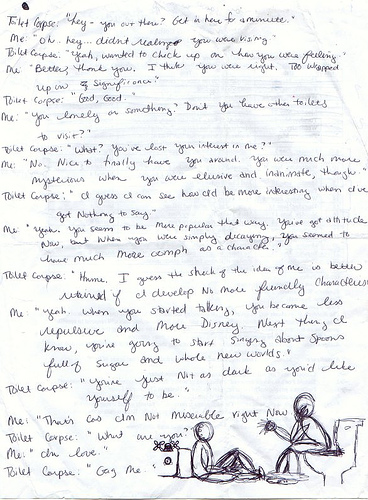 Toilet Corpse: "Hey - you out there? Get in here for a minute."
Me: "Oh. hey... didnt realize you were visiting"
Toilet Corpse: "Yeah, wanted to check up on how you were feeling."
Me: "Better, thank you. I think you were right. Too wrapped
up in significance."
Toilet Corpse: "Good, Good..."
Me: "You lonely or something? Don't you have other toilets
to visit?"
Toilet Corpse: "What? You've lost your interest in me?"
Me: "No. Nice to finally have you around. You were much more
mysterious when you were elusive and inanimate, though."
Toilet Corpse: "I guess I can see how I'd be more interesting when I've
got Nothing to say."
Me: "Yeah. You seem to be more popular that way. You've got attitude
Now, but when you were simply decaying, you seemed to
have much more oomph as a character."
Toilet Corpse: "Hmmm, I guess the shock of the idea of me is better
retained if I develop No more friendly Characteristics
Me: "Yeah. When you started talking, you became less
repulsive and More Disney. Next thing I
know, you're going to start Singing about Spoons
full of Sugar and whole new worlds."
Toilet Corpse: "You're just Not as dark as you'd like
yourself to be."
Me: "That's cos I'm Not Miserable right Now
Toilet Corpse: "What are you?"
Me: "I'm love."
Toilet Corpse: "Gag Me."